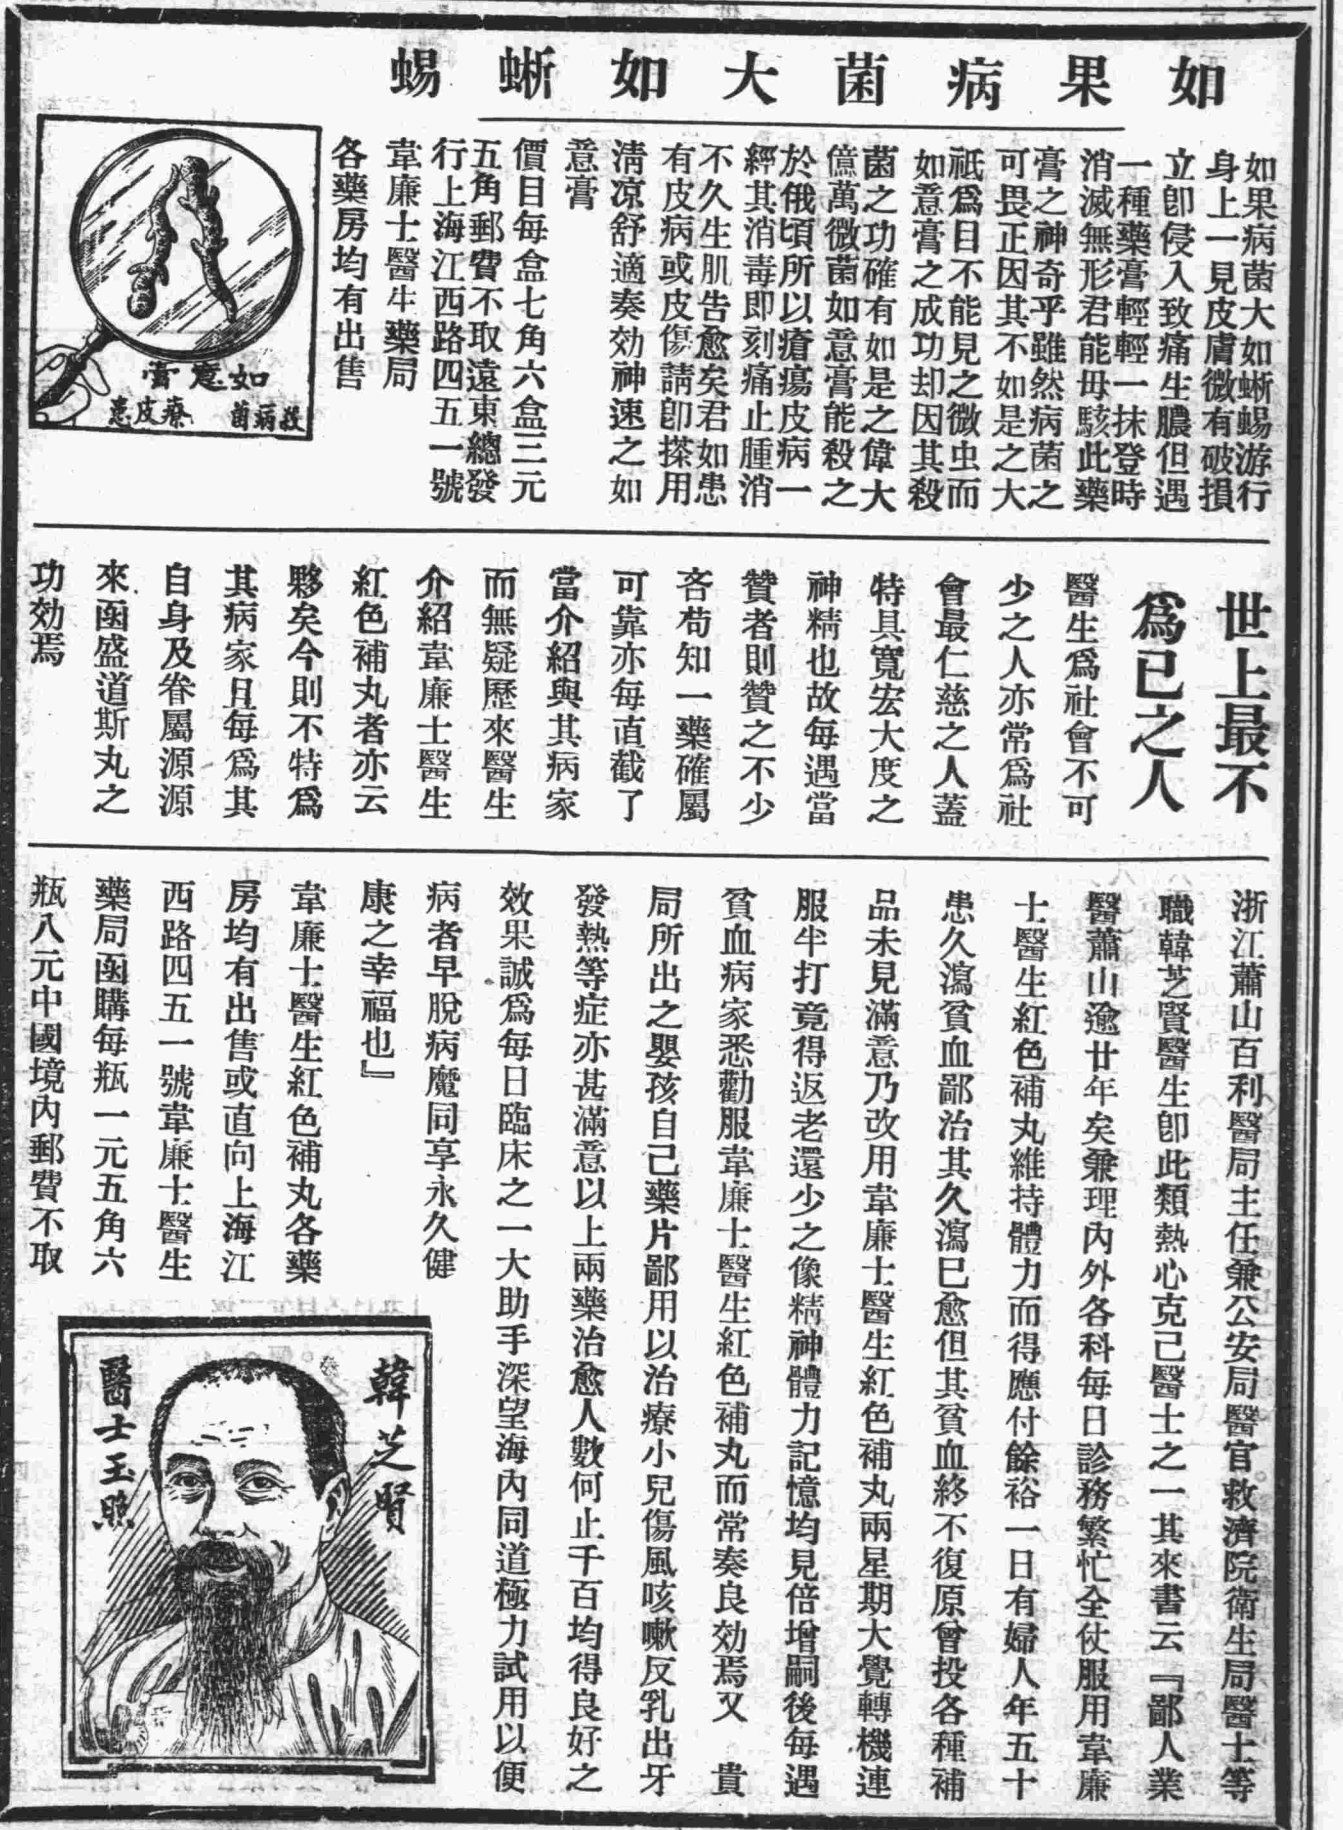 如果病菌大如蜥蜴
如果病菌大如蜥蜴游行
身上一見皮膚微有破損
立卽侵入致痛生膿但遇
一種藥膏輕輕一抹登時
消滅無形君能毋駭此藥
膏之神奇乎雖然病菌之
可畏正因其不如是之大
祗爲目不能見之微虫而
如意膏之成功却因其殺
菌之功確有如是之偉大
億萬微菌如意膏能殺之
於俄頃所以瘡瘍皮病一
經其消毒即刻痛止腫消
不久生肌告愈矣君如患
有皮病或皮傷請卽搽用
淸凉舒適奏効神速之如
意膏
價目每盒七角六盒三元
五角郵費不取遠東總發
行上海江西路四五一號
韋廉士醫生藥局
各藥房均有出售
如意膏
殺病菌
療皮患
世上最不
爲已之人
醫生爲社會不可
少之人亦常爲社
會最仁慈之人蓋
特具寬宏大度之
神精也故每遇當
贊者則贊之不少
吝苟知一藥確屬
可靠亦每直截了
當介紹與其病家
而無疑歷來醫生
介紹韋廉士醫生
紅色補丸者亦云
夥矣今則不特爲
其病家且每爲其
自身及眷屬源源
來函盛道斯丸之
功効焉
浙江蕭山百利醫局主任兼公安局醫官救濟院衛生局醫士等
職韓芝賢醫生卽此類熱心克己醫士之一其來書云『鄙人業
醫蕭山逾廿年矣兼理內外各科每日診務繁忙全仗服用韋廉
士醫生紅色補丸維持體力而得應付餘裕一日有婦人年五十
患久瀉貧血鄙治其久瀉巳愈但其貧血終不復原曾投各種補
品未見滿意乃改用韋廉士醫生紅色補丸兩星期大覺轉機連
服半打竟得返老還少之像精神體力記憶均見倍增嗣後每遇
貧血病家悉勸服韋廉士醫生紅色補丸而常奏良効焉又　貴
局所出之嬰孩自己藥片鄙用以治療小兒傷風咳嗽反乳出牙
發熱等症亦甚滿意以上兩藥治愈人數何止千百均得良好之
效果誠爲每日臨床之一大助手深望海內同道極力試用以便
病者早脫病魔同享永久健
康之幸福也』
韋廉士醫生紅色補丸各藥
房均有出售或直向上海江
西路四五一號韋廉士醫生
藥局函購每瓶一元五角六
瓶八元中國境內郵費不取
韓芝賢
醫士玉照